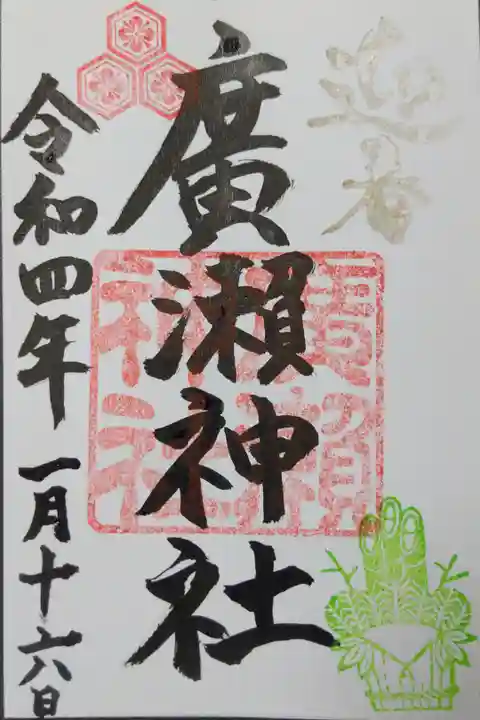 迎春
廣瀬神社
廣瀬神社
令和四年一月十六日